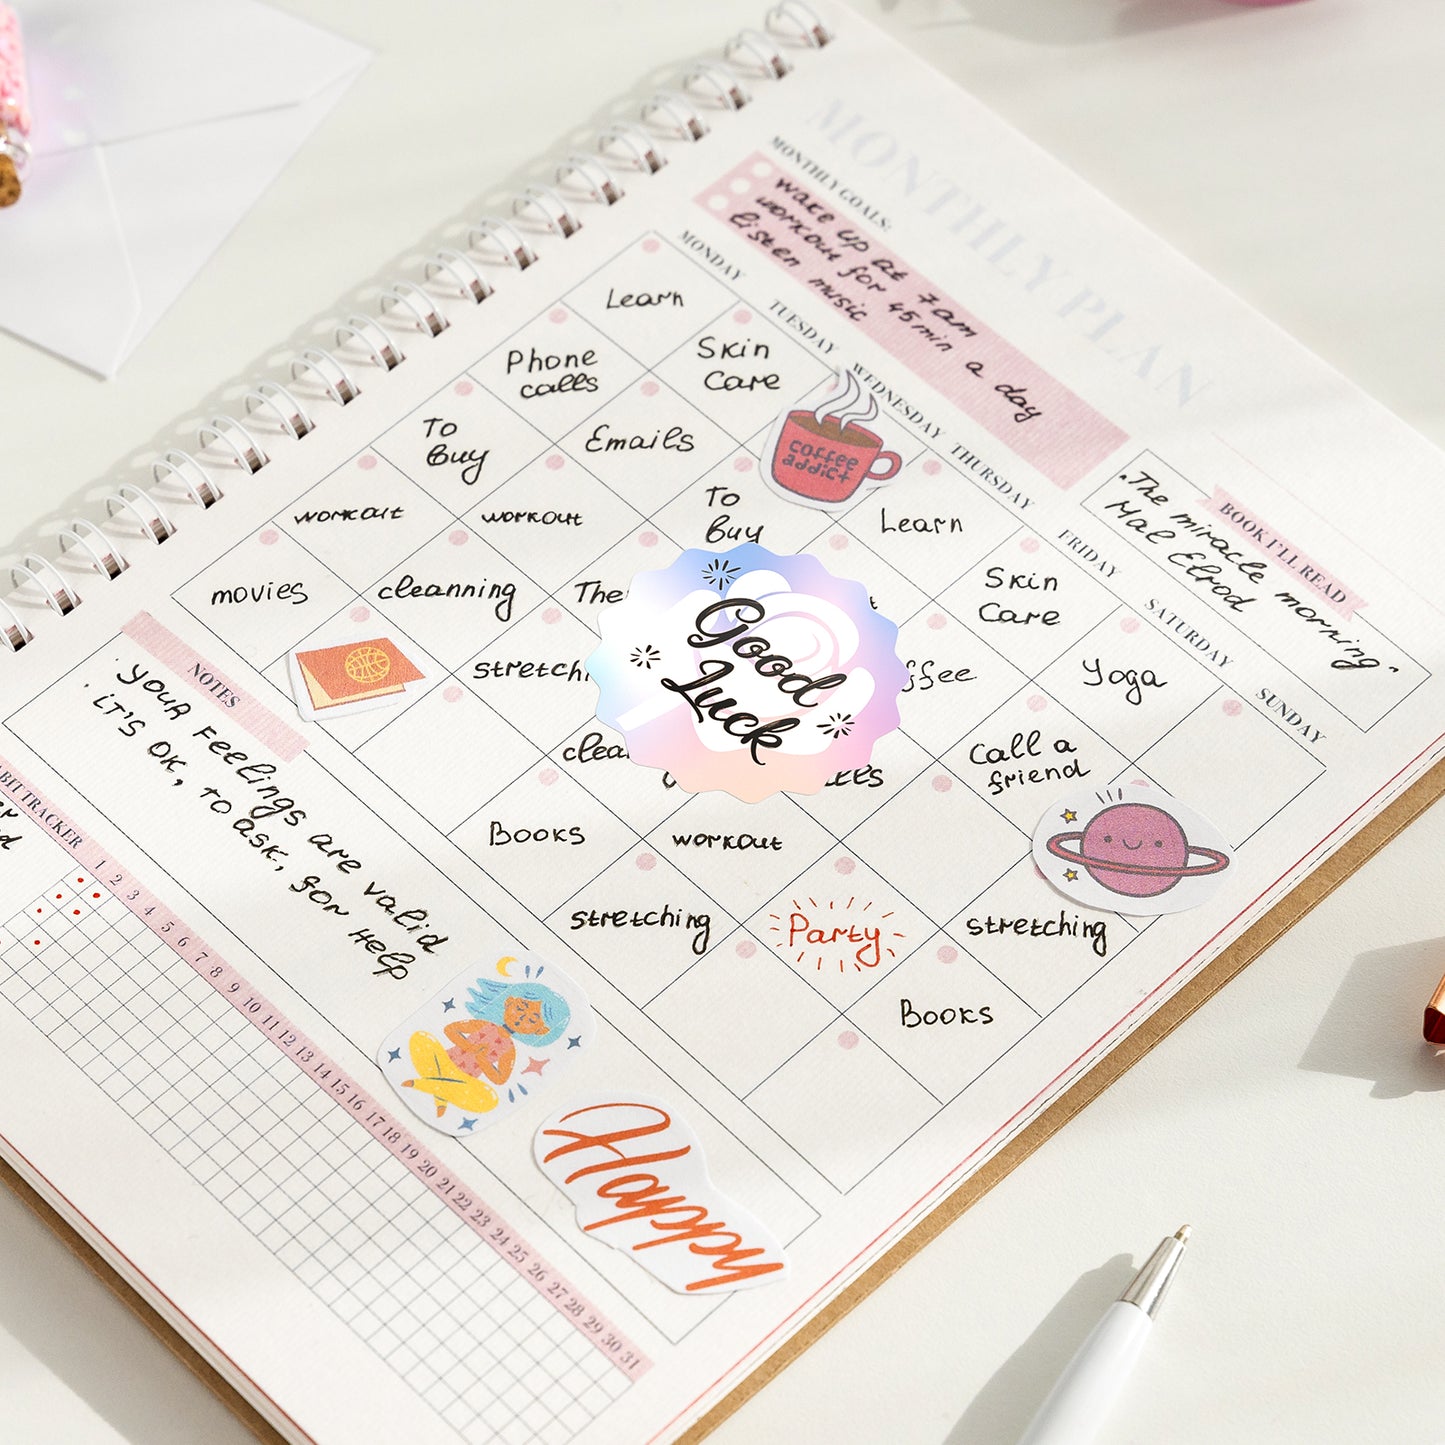 MONTHLY PLAN
MONTHLY GOALS:
wake up at 7am
workout for 45 min a day
listen music
BOOK I'LL READ
"The miracle morning"
Hal Elrod
MONDAY
TUESDAY
WEDNESDAY
THURSDAY
FRIDAY
SATURDAY
SUNDAY
Learn
Phone
calls
Skin
Care
To
Buy
Emails
coffee
addict
workout
workout
To
Buy
Learn
movies
cleanning
The
Skin
Care
stretchi
ffee
Yoga
clea
Call a
friend
Books
workout
stretching
Party
stretching
Books
Good
Luck
NOTES
YOUR FEELINGS are valid
IT'S OK, TO ASK, FOR HELP
BIT TRACKER
1 2 3 4 5 6 7 8 9 10 11 12 13 14 15 16 17 18 19 20 21 22 23 24 25 26 27 28 29 30 31
Happy